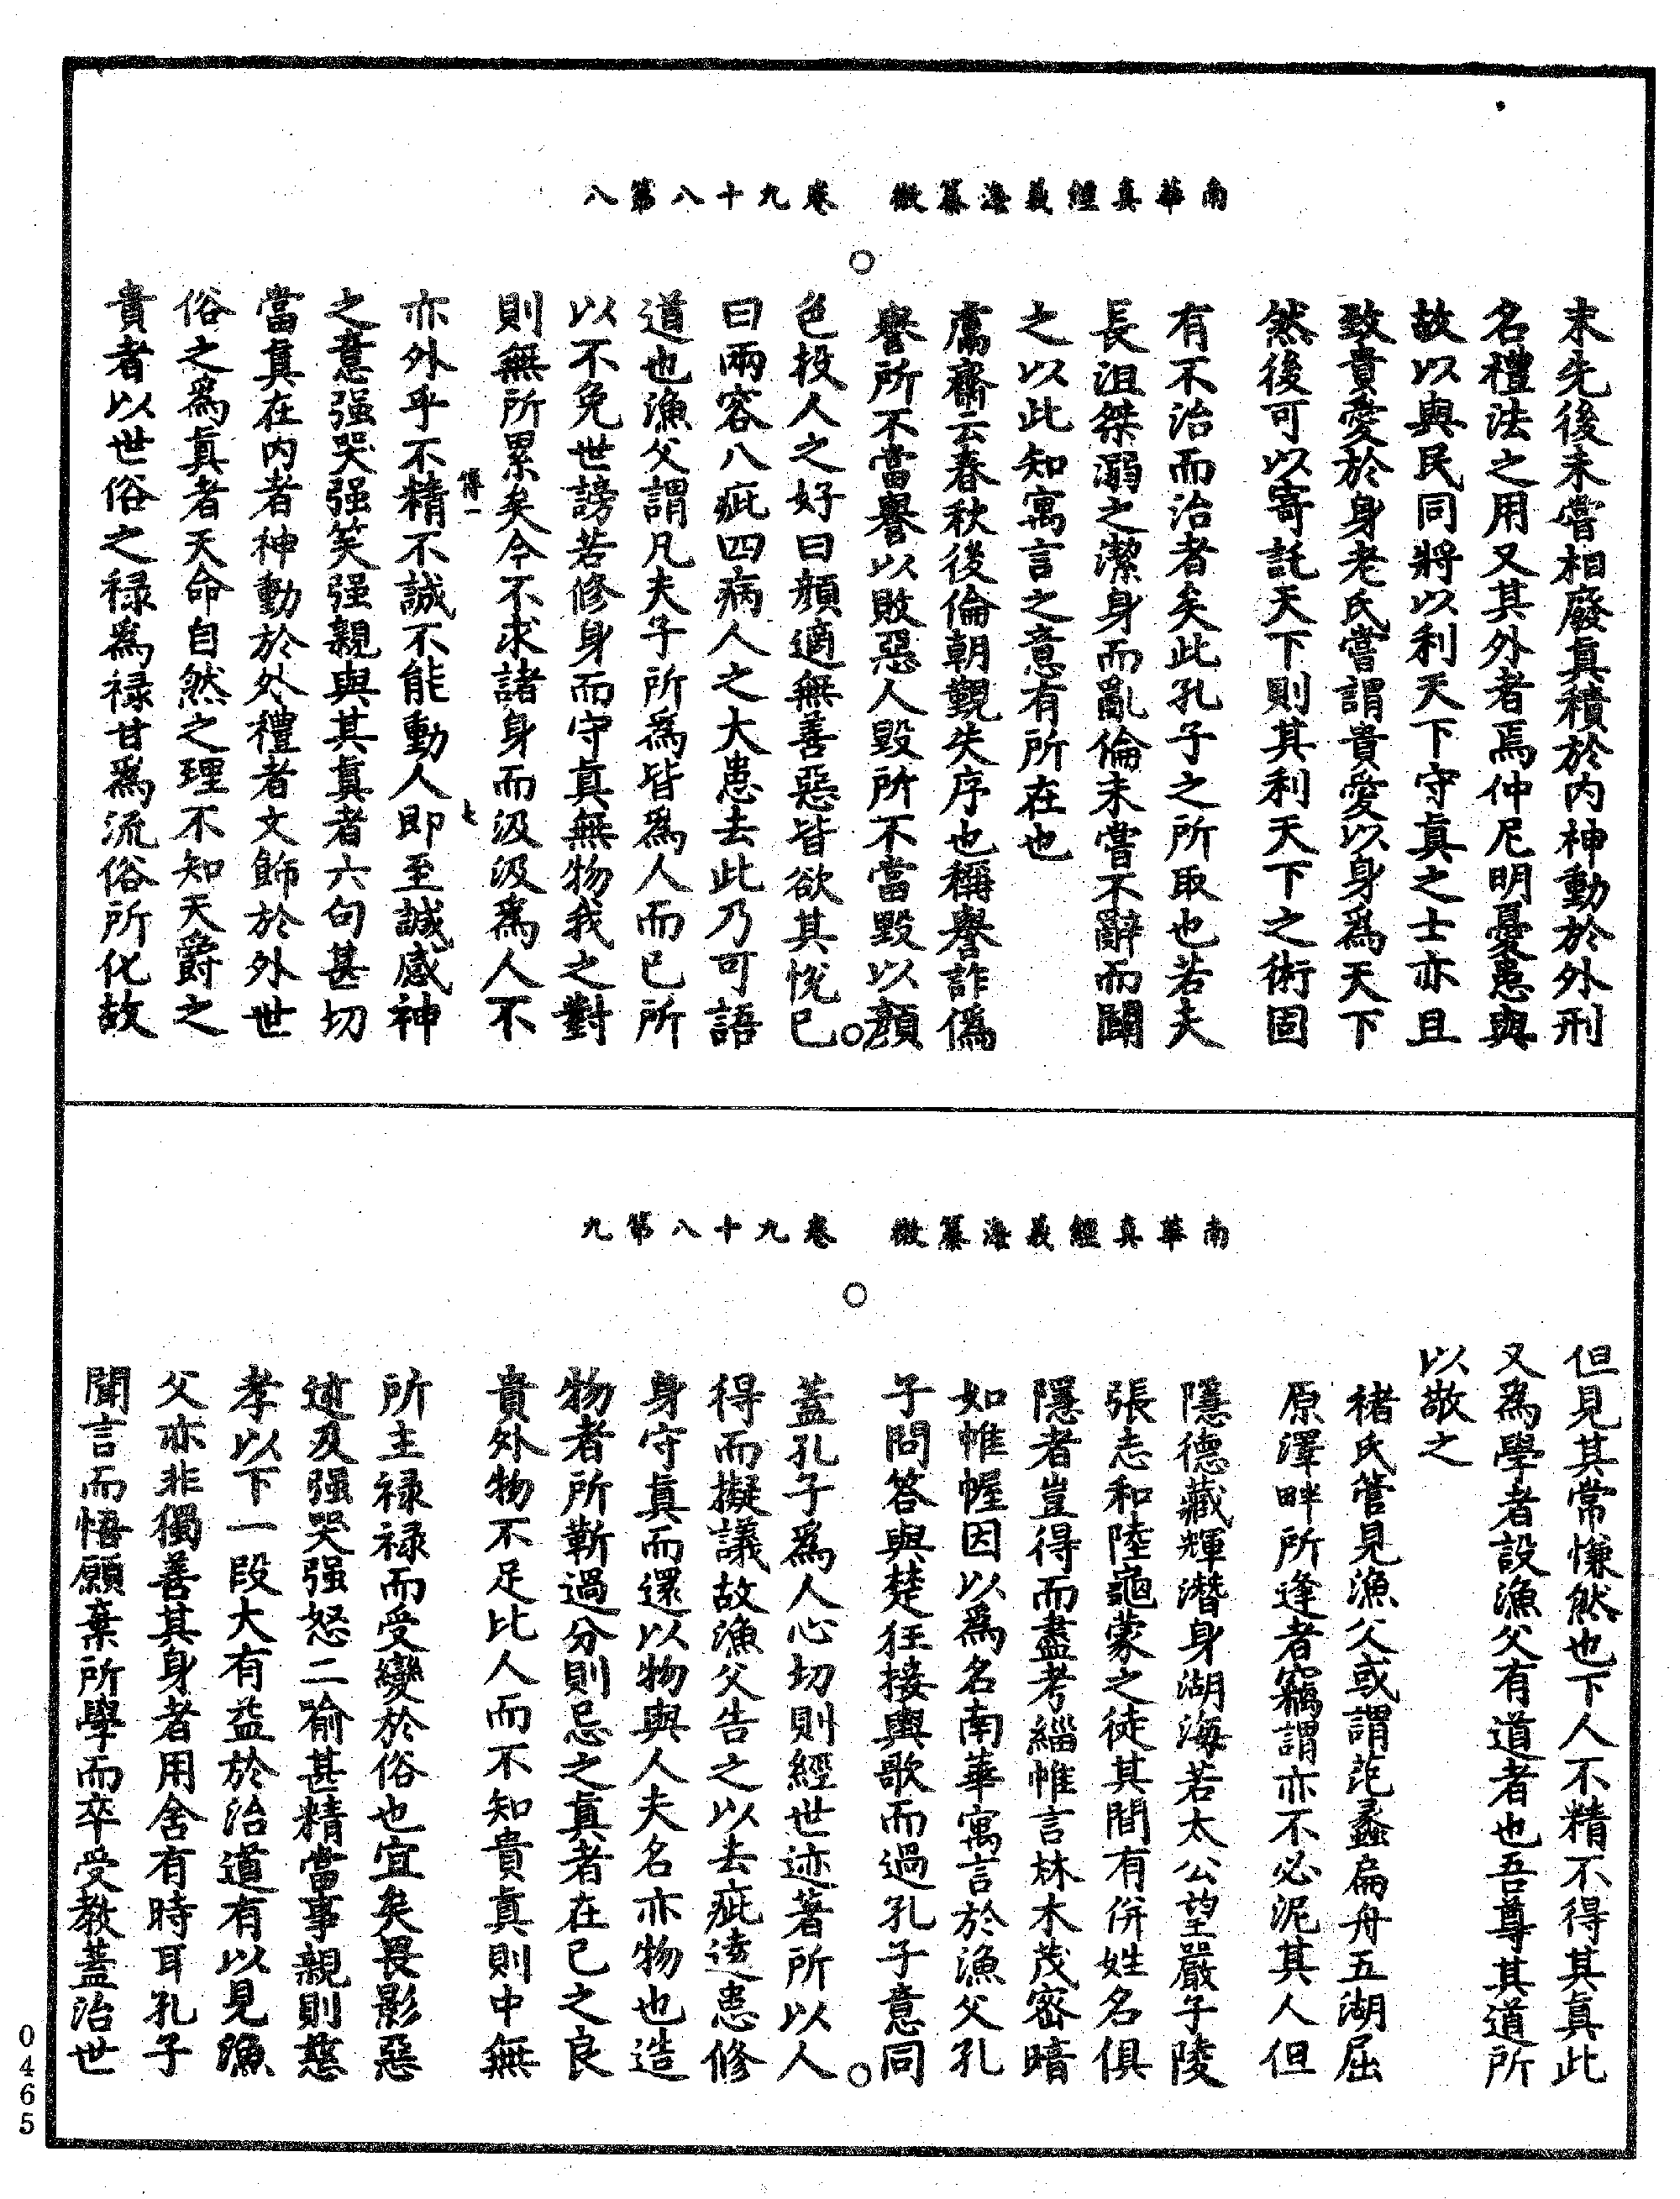 南華真經義海纂微　卷九十八第八
末先後未嘗相廢真積於内神動於外刑
名禮法之用又其外者焉仲尼明憂患與
故以與民同將以利天下守真之士亦且
致貴愛於身老氏嘗謂貴愛以身爲天下
然後可以寄託天下則其利天下之術固
有不治而治者矣此孔子之所取也若夫
長沮桀溺之潔身而亂倫未嘗不辭而闢
之以此知寓言之意有所在也
鬳齋云春秋後倫朝覲失序也稱譽詐僞
譽所不當譽以敗惡人毀所不當毀以顔
色投人之好曰顔適無善惡皆欲其悅已
曰兩容八疵四病人之大患去此乃可語
道也漁父謂凡夫子所爲皆爲人而已所
以不免世謗若修身而守真無物我之對
則無所累矣今不求諸身而汲汲爲人不
傳一　七
亦外乎不精不誠不能動人即至誠感神
之意强哭强笑强親與其真者六句甚切
當真在内者神動於外禮者文飾於外世
俗之爲真者天命自然之理不知天爵之
貴者以世俗之禄爲禄甘爲流俗所化故
南華真經義海纂微　卷九十八第九
但見其常慊然也下人不精不得其真此
又爲學者設漁父有道者也吾尊其道所
以敬之
褚氏管見漁父或謂范蠡扁舟五湖屈
原澤畔所逢者竊謂亦不必泥其人但
隱德藏輝潛身湖海若太公望嚴子陵
張志和陸龜蒙之徒其間有併姓名俱
隱者豈得而盡考緇帷言林木茂密暗
如帷幄因以爲名南華寓言於漁父孔
子問答與楚狂接輿歌而過孔子意同
蓋孔子爲人心切則經世迹著所以人
得而擬議故漁父告之以去疵遠患修
身守真而還以物與人夫名亦物也造
物者所靳過分則忌之真者在己之良
貴外物不足比人而不知貴真則中無
所主禄禄而受變於俗也宜矣畏影惡
迹及强哭强怒二喻甚精當事親則慈
孝以下一段大有益於治道有以見漁
父亦非獨善其身者用舍有時耳孔子
聞言而悟願棄所學而卒受教蓋治世
0465